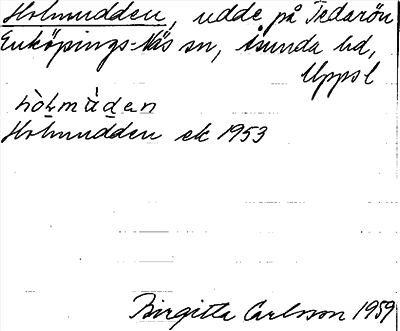 Holmudden, udde på Tedarön
Enköpings-Näs sn, Åsunda hd,
Uppsl
hòlmùdan
Holmudden ek 1953
Birgitta Carlsson 1959